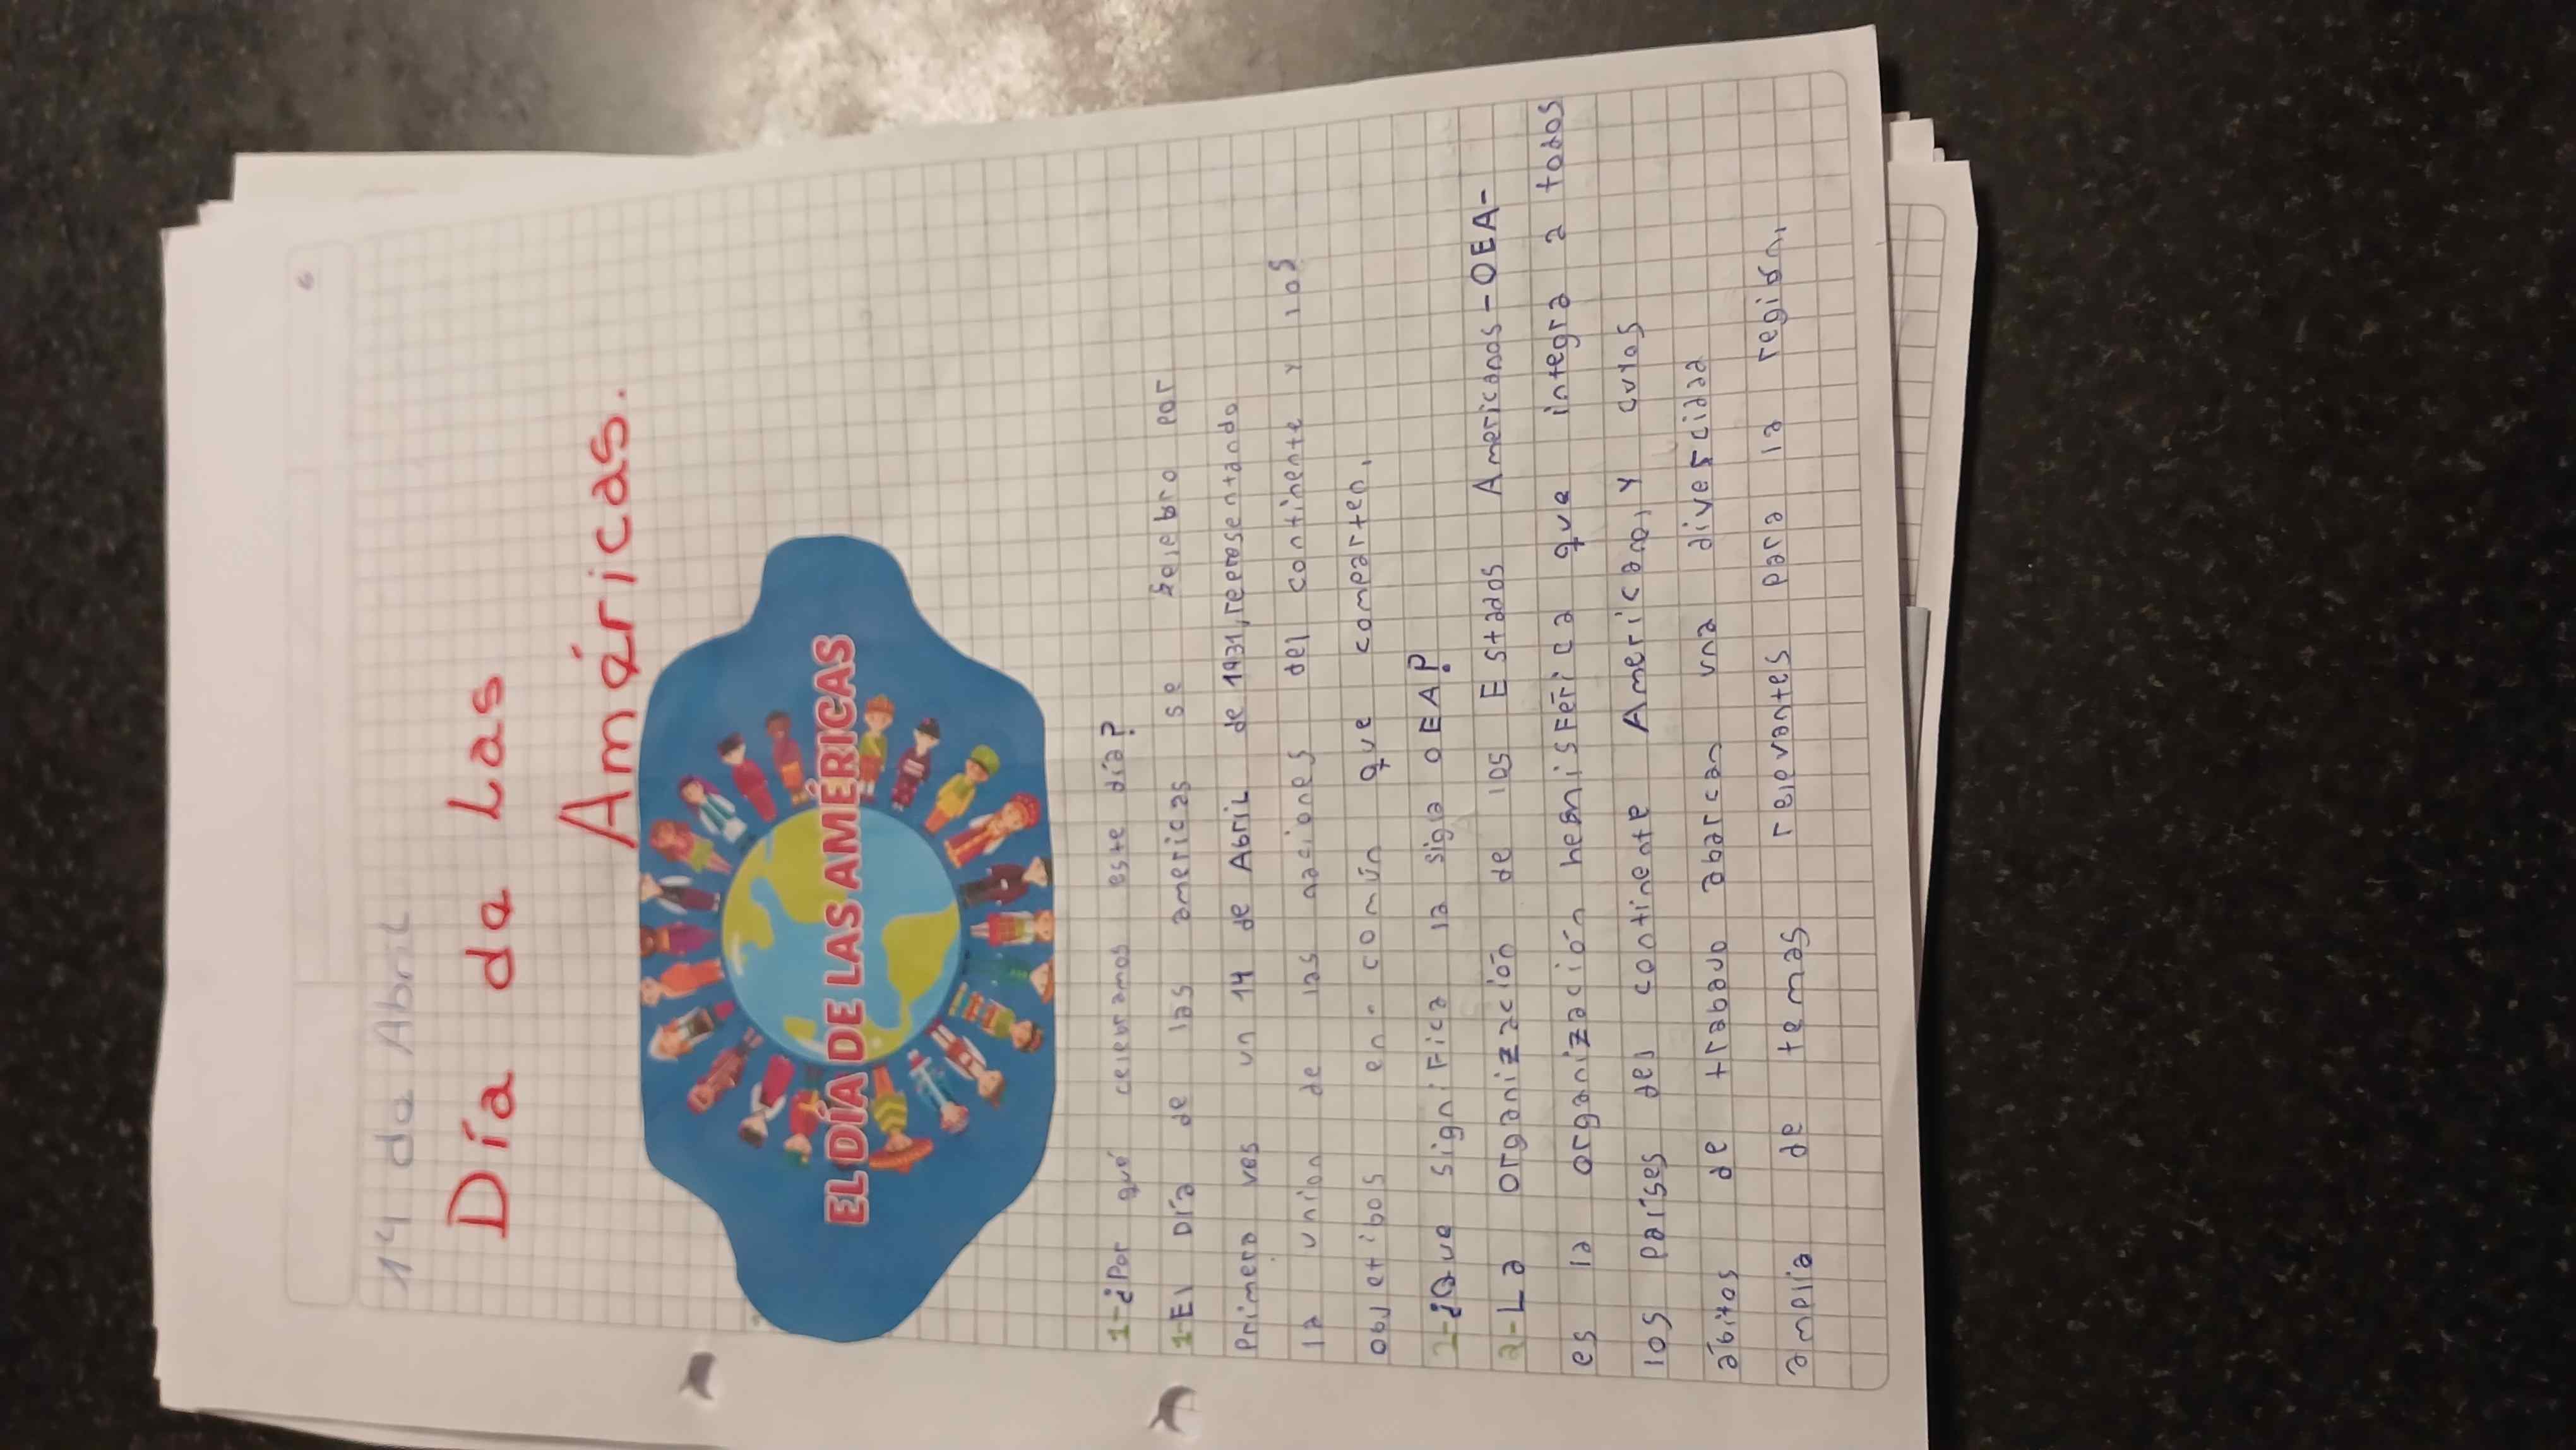 14 de Abril
Día de Las
Américas.
EL DÍA DE LAS AMÉRICAS
1-¿Por qué celebramos este día?
1-El Día de las americas se selebro por
primera ves un 14 de Abril de 1931, reprosentando
la union de las naciones del continente y los
objetibos en común que comparten.
2-¿Que significa la sigla OEA?
2-La organización de los Estados Americanos-OEA-
es la organización hemisFérica que integra a todos
los paises del continente Americano, y cuyos
ábitos de trabajo abarcan una diverscidad
amplia de temas relevantes para la región.